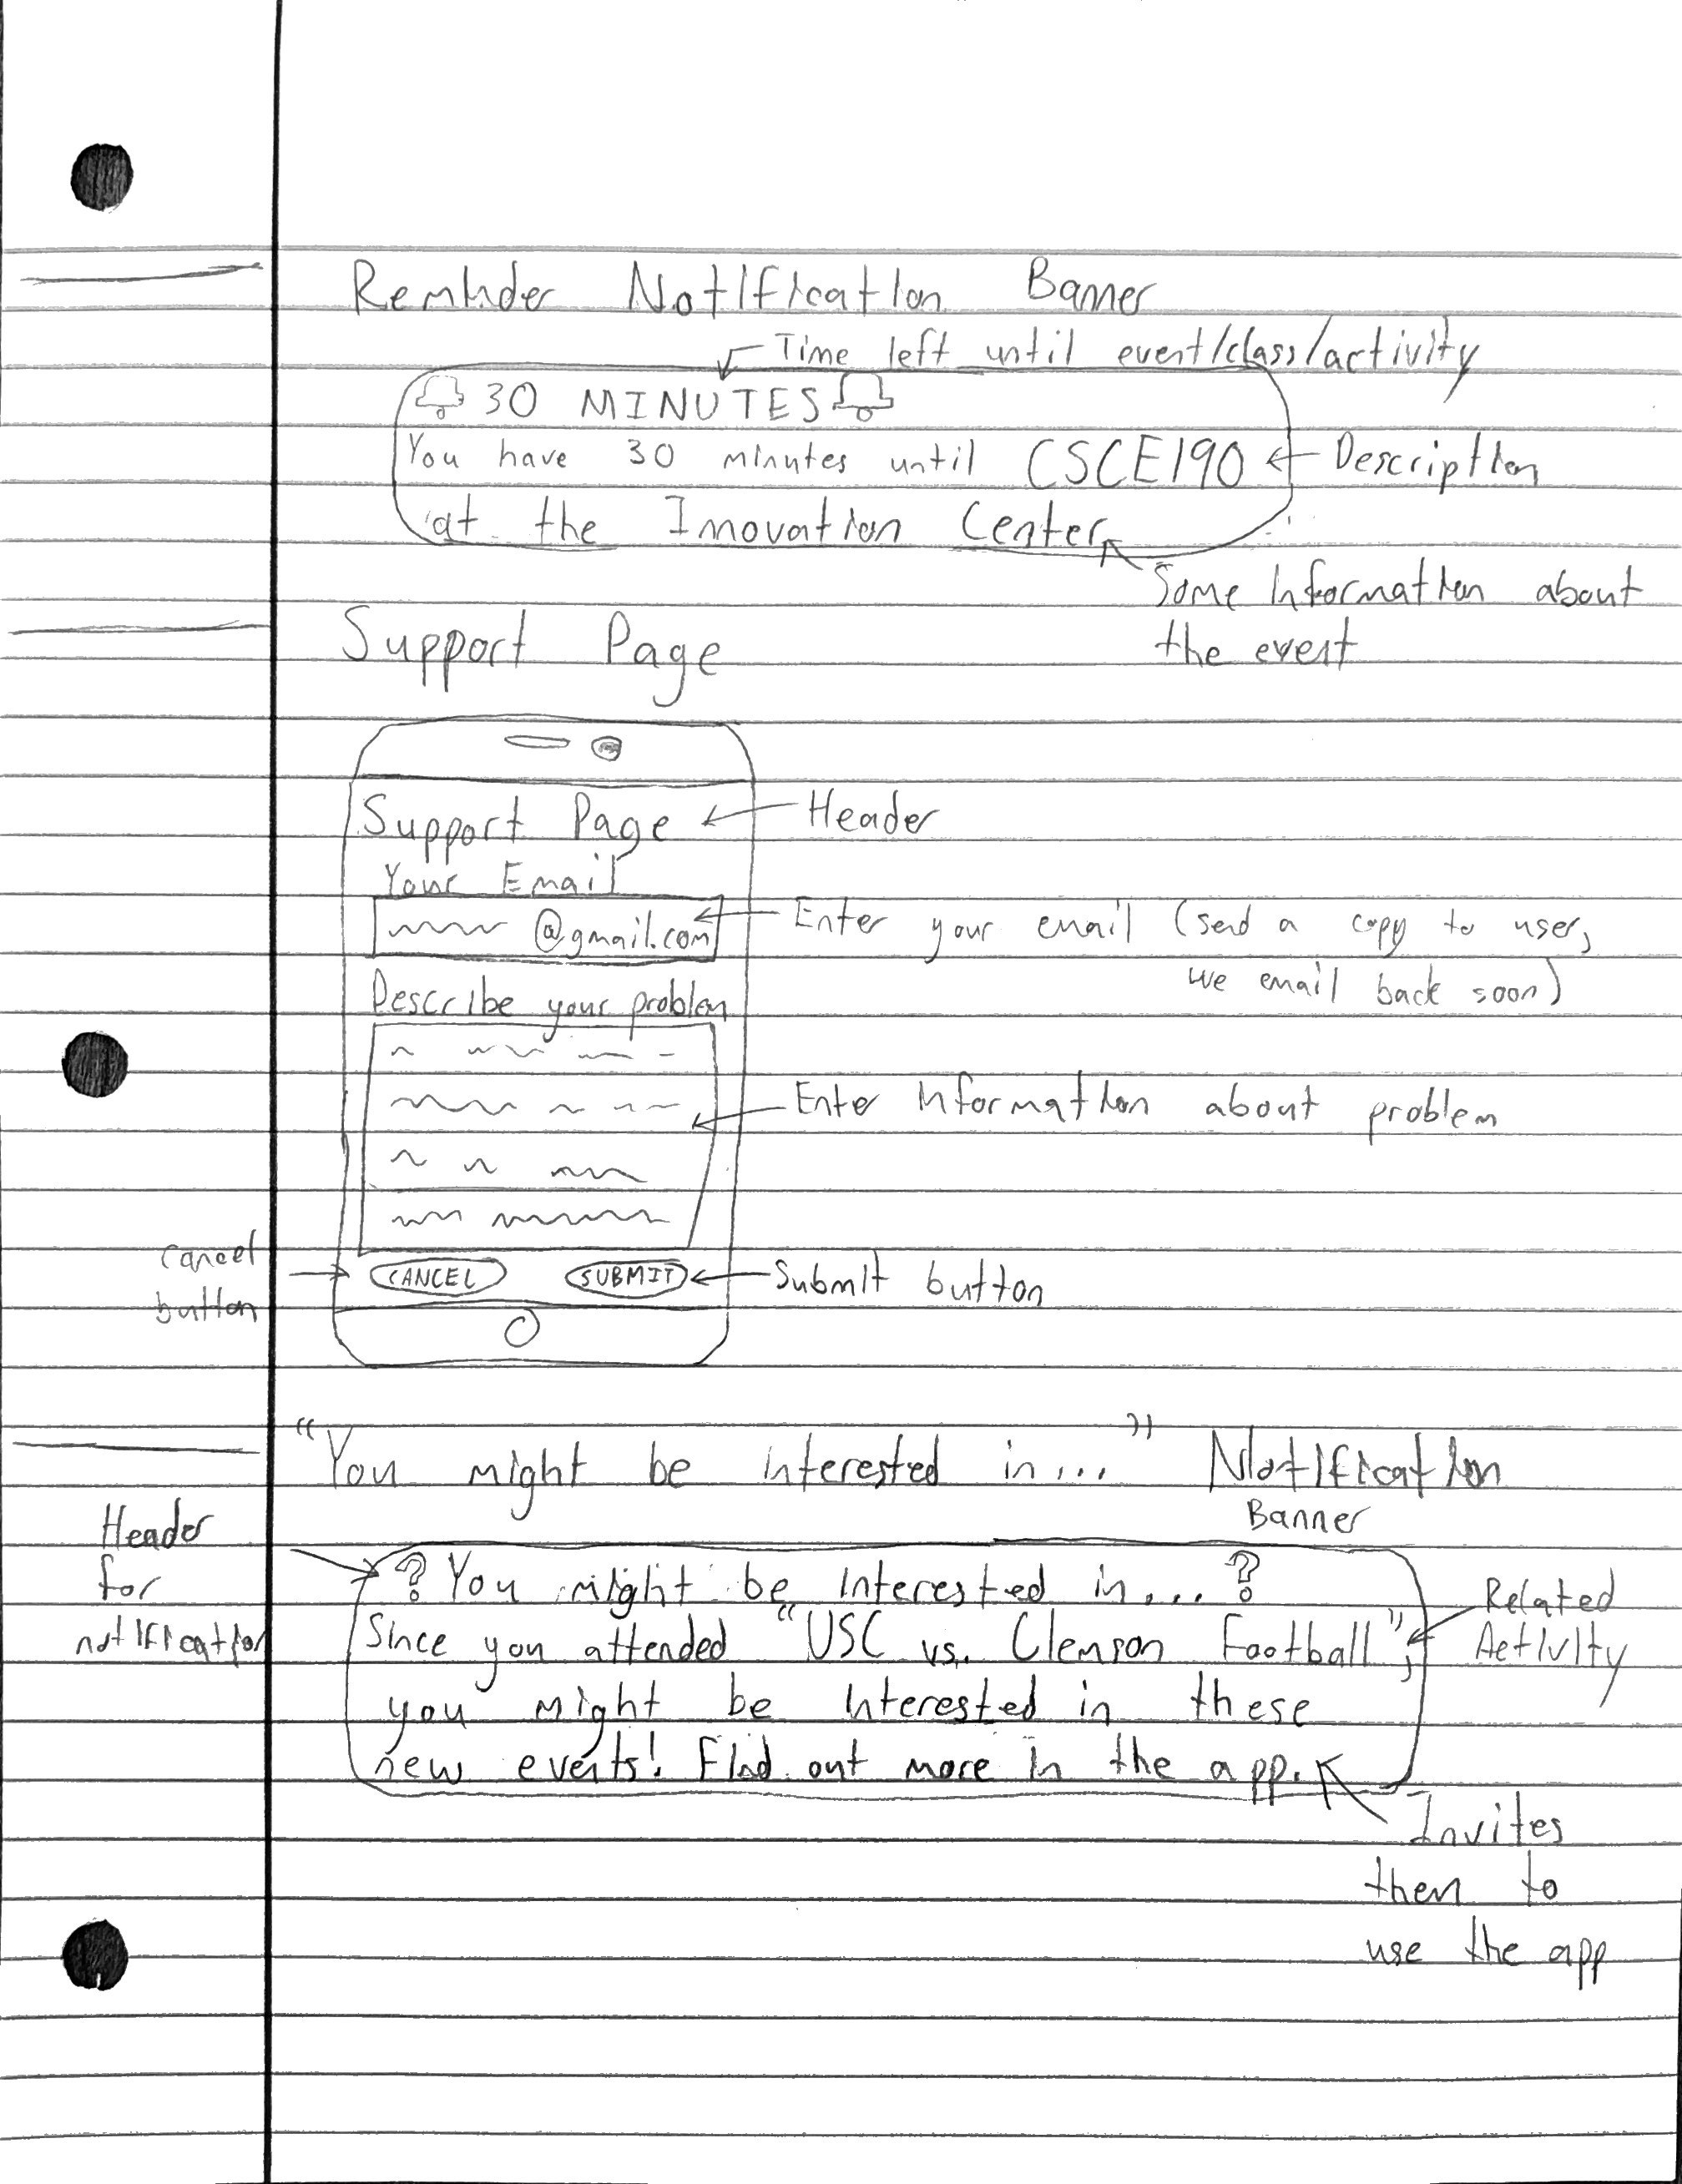 Reminder Notification Banner
Time left until event/class/activity
30 MINUTES
You have 30 minutes until CSCE190 ← Description
at the Innovation Center
Some information about
the event
Support Page
Support Page ← Header
Your Email
@gmail.com ← Enter your email (send a copy to user,
we email back soon)
Describe your problem
← Enter information about problem
Cancel
button
→
CANCEL SUBMIT ← Submit button
"You might be interested in...." Notification
Banner
Header
for
notification
? You might be interested in.... ?
Since you attended "USC vs. Clemson Football",
Related
Activity
you might be interested in these
new events! Find out more in the app.
Invites
them to
use the app